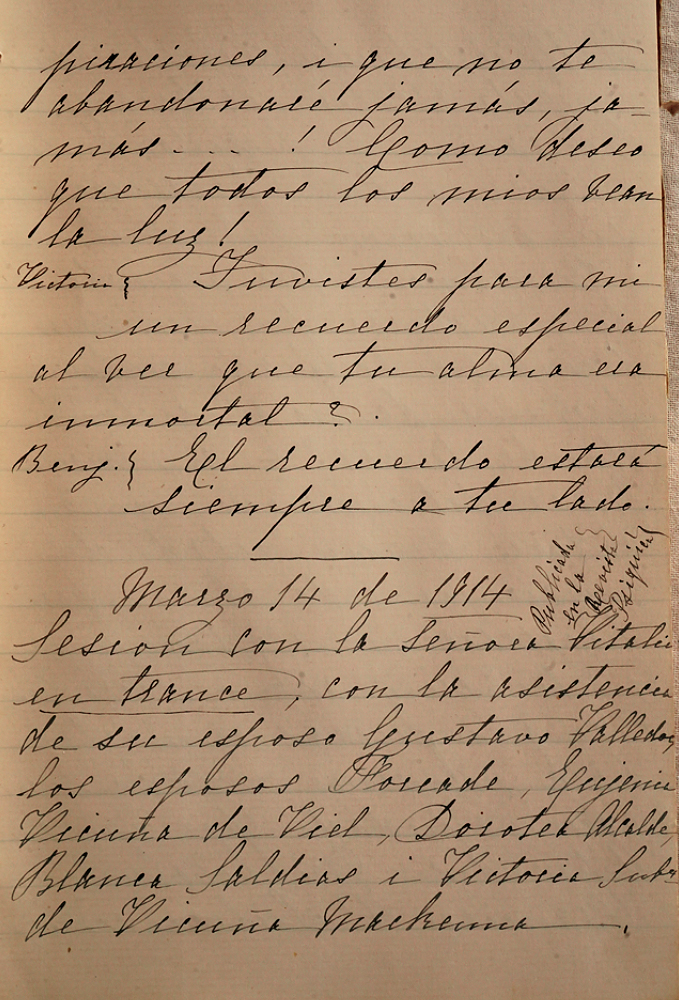 piraciones, i que no te
abandonaré jamás, ja-
más - - - ! Como deseo
que todos los mios vean
la luz!
Victoria } Tuvistes para mi
un recuerdo especial
al ver que tu alma era
inmortal?.
Benj. } El recuerdo estará
siempre a tu lado.
Marzo 14 de 1914
Publicada
en la
Revista
Psiquica
Sesion con la Señora Vitalia
en trance, con la asistencia
de su esposo Gustavo Valledor,
los esposos Forcade, Eujenia
Vicuña de Viel, Dorotea Alcalde,
Blanca Saldias i Victoria Subr.
de Vicuña Mackenna.